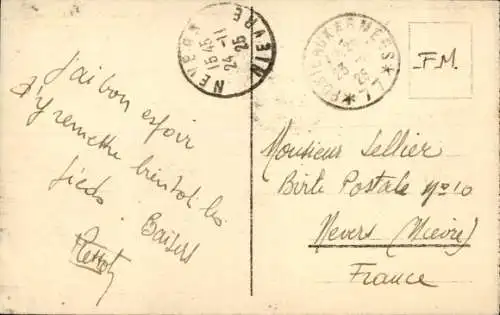 J'ai bon espoir
d'y remettre bientôt les
pieds
Baisers
NEVERS
15 45
24 - 11
25
NIEVRE
POSTE AUX ARMEES
23
25
* 77 *
F.M.
Monsieur Sellier
Bte Postale No 10
Nevers (Nièvre)
France